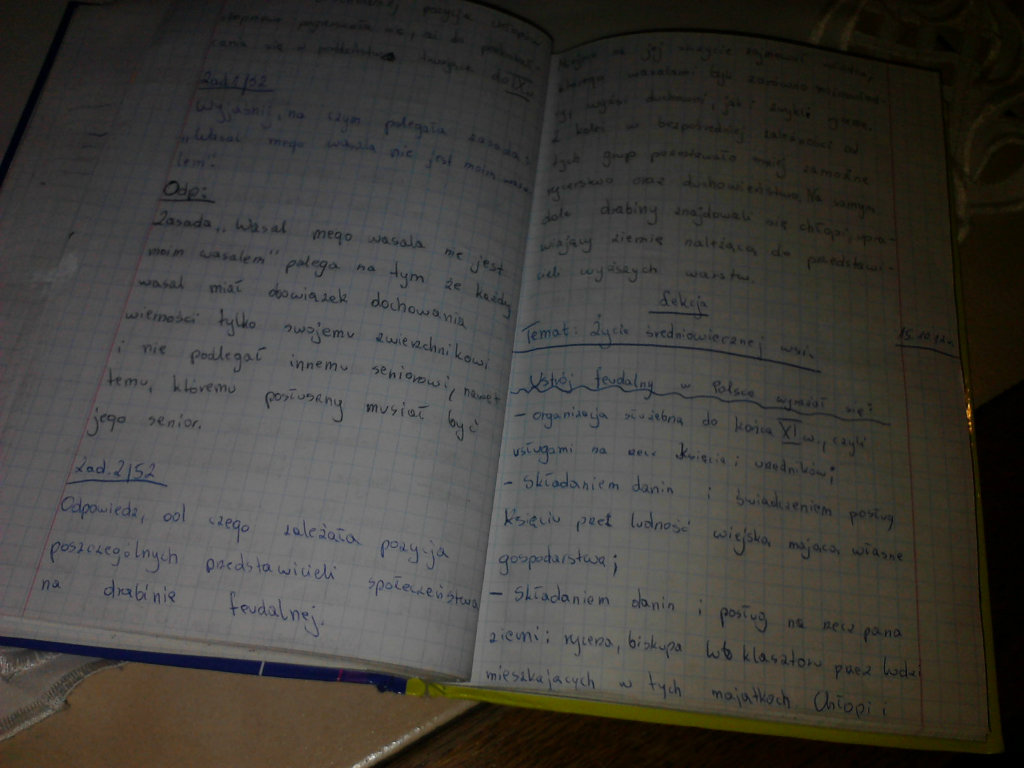 pozycja chłopów
stopniowo pogarszała się, aż do
cania się w poddaństwo trwające do IX w.
Zad.1/52
Wyjaśnij, na czym polegała zasada:
„Wasal mego wasala nie jest moim wasa-
lem".
Odp:
Zasada „Wasal mego wasala nie jest
moim wasalem" polega na tym że każdy
wasal miał obowiązek dochowania
wierności tylko swojemu zwierzchnikowi
i nie podlegał innemu seniorowi, nawet
temu, któremu posłuszny musiał być
jego senior.
Zad.2/52
Odpowiedz, od czego zależała pozycja
poszczególnych przedstawicieli społeczeństwa
na drabinie feudalnej.
na jej szczycie zajmował władca,
którego wasalami byli zarówno możnowład-
cy, wyżsi duchowni, jak i zwykli rycerze.
Z kolei w bezpośredniej zależności od
tych grup pozostawało mniej zamożne
rycerstwo oraz duchowieństwo. Na samym
dole drabiny znajdowali się chłopi, upra-
wiający ziemię należącą do przedstawi-
cieli wyższych warstw.
Lekcja
Temat: Życie średniowiecznej wsi.
15.10.12r.
Ustrój feudalny w Polsce wyrażał się:
- organizacja służebna do końca XI w., czyli
usługami na rzecz księcia i urzędników;
- Składaniem danin i świadczeniem posług
księciu przez ludność wiejską mającą własne
gospodarstwa;
- Składaniem danin i posług na rzecz pana
ziemi: rycerza, biskupa lub klasztoru przez ludzi
mieszkających w tych majątkach. Chłopi i